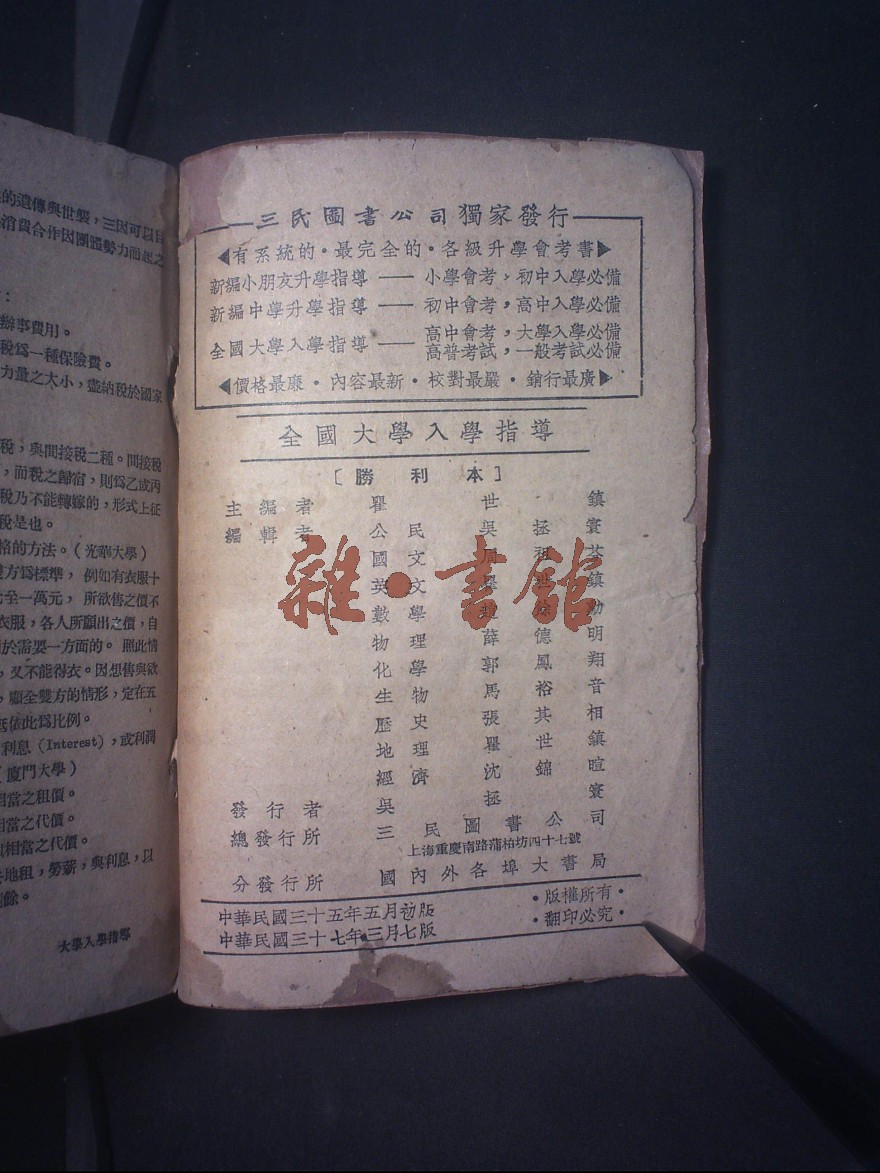 三民圖書公司獨家發行
◀有系統的·最完全的·各級升學會考書▶
新編小朋友升學指導——小學會考，初中入學必備
新編中學升學指導——初中會考，高中入學必備
全國大學入學指導——高中會考，大學入學必備
高普考試，一般考試必備
◀價格最廉·內容最新·校對最嚴·銷行最廣▶
全國大學入學指導
［勝利本］
主編者 瞿世鎮
編輯者 公民 吳拯寰
國文 周
英文
數學
物理 薛德明
化學 郭鳳翔
生物 馬裕音
歷史 張其相
地理 瞿世鎮
經濟 沈錦暄
發行者 吳拯寰
總發行所 三民圖書公司
上海重慶南路蒲柏坊四十七號
分發行所 國內外各埠大書局
中華民國三十五年五月初版
中華民國三十七年三月七版
·版權所有·
·翻印必究·
雜·書館
的遺傳與世襲，三因可以自
消費合作因團體勢力而起之
：
辦事費用。
稅爲一種保險費。
力量之大小，盡納稅於國家
稅，與間接稅二種。間接稅
，而稅之歸宿，則爲乙或丙
稅乃不能轉嫁的，形式上征
稅是也。
格的方法。（光華大學）
雙方爲標準，例如有衣服十
元至一萬元，所欲售之價不
衣服，各人所願出之價，自
於需要一方面的。照此情
，又不能得衣。因想售與欲
，顧全雙方的情形，定在五
依此爲比例。
利息（Interest），或利潤
（廈門大學）
相當之租價。
相當之代價。
相當之代價。
地租，勞薪，與利息，以
餘。
大學入學指導